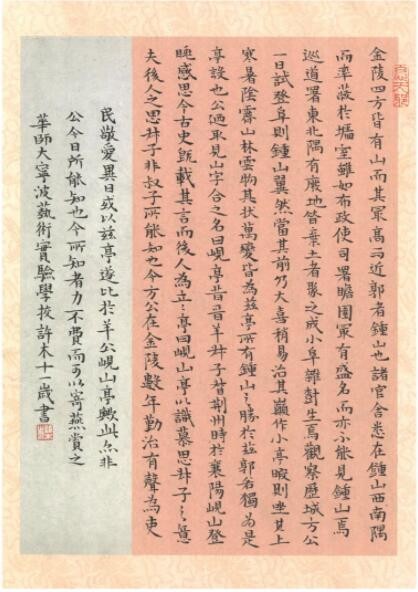 金陵四方皆有山而其最高而近郭者鍾山也諸官舍悉在鍾山西南隅
而率蔽於墻室雖如布政使司署瞻園最有盛名而亦不能見鍾山焉
巡道署東北隅有廢地昔棄土者聚之成小阜雜樹生焉觀察歷城方公
一日試登阜則鍾山翼然當其前乃大喜稍易治其巔作小亭暇則坐其上
寒暑陰霽山林雲物其狀萬變皆為茲亭所有鍾山之勝於茲郭若獨為是
亭設也公迺取見山字合之名曰峴亭昔晉羊叔子督荆州時於襄陽峴山登
眺感思今古史既載其言而後人為立亭曰峴山亭以識慕思叔子之意
夫後人之思叔子非叔子所能知也今方公在金陵數年勤治有聲為吏
民敬愛異日或以茲亭遂比於羊公峴山亭歟此亦非
公今日所能知也今所知者力不費而可以寄燕賞之
華師大寧波藝術實驗學校許木十一歲書